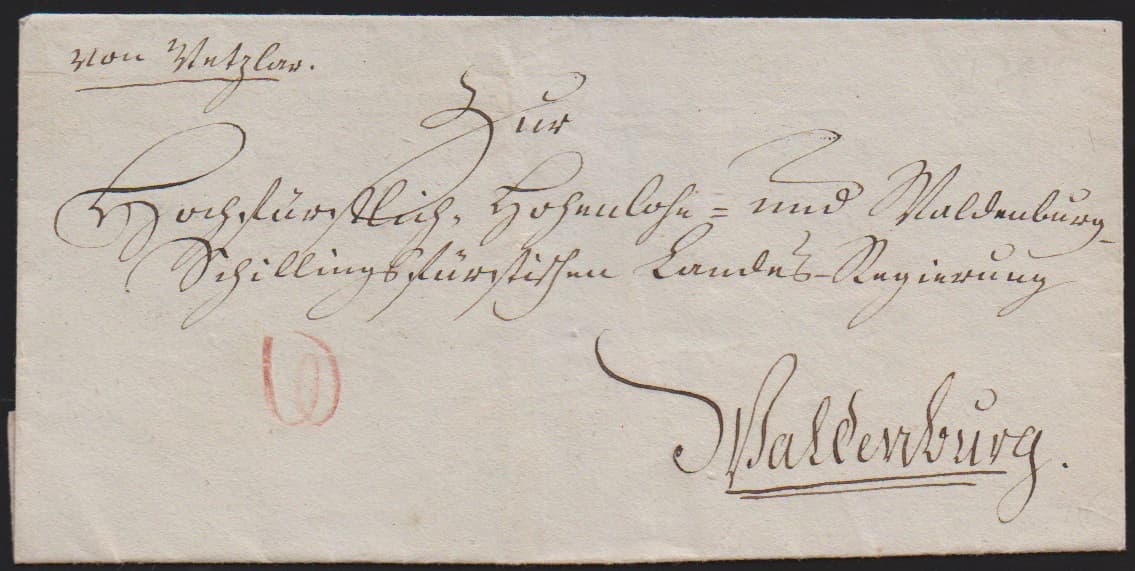 von Wetzlar.
Zur
Hochfürstlich, Hohenlohe = und Waldenburg-
Schillingsfürstischen Landes-Regierung
6
Waldenburg.